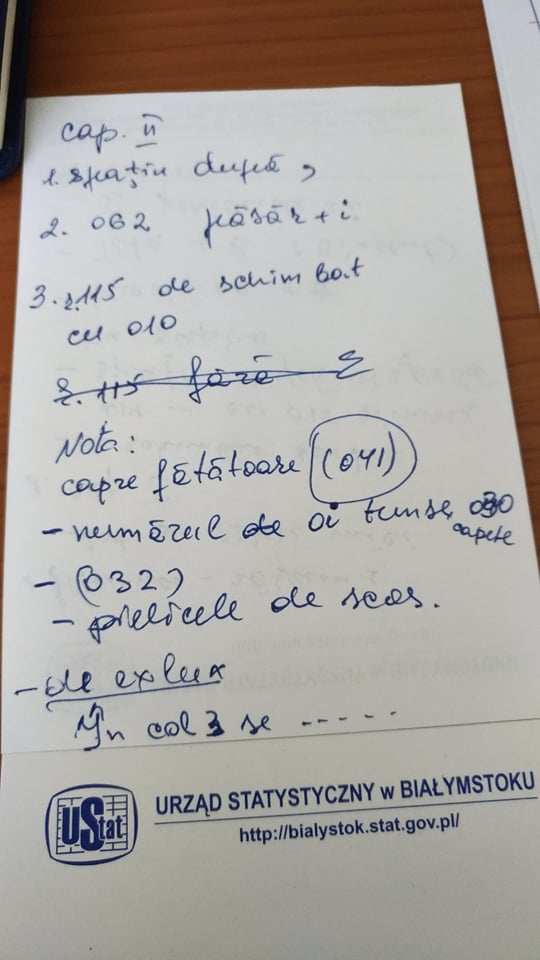 cap. II
1. spațiu după ,
2. 062 păsăr + i
3. r.115 de schimbat
cu 010
r. 115 fără
Notă:
capre fătătoare (041)
- numărul de oi tunse, 030
capete
- (032)
- pielicele de scos.
- de exlux
În col 3 se -----
UStat
URZĄD STATYSTYCZNY w BIAŁYMSTOKU
http://bialystok.stat.gov.pl/